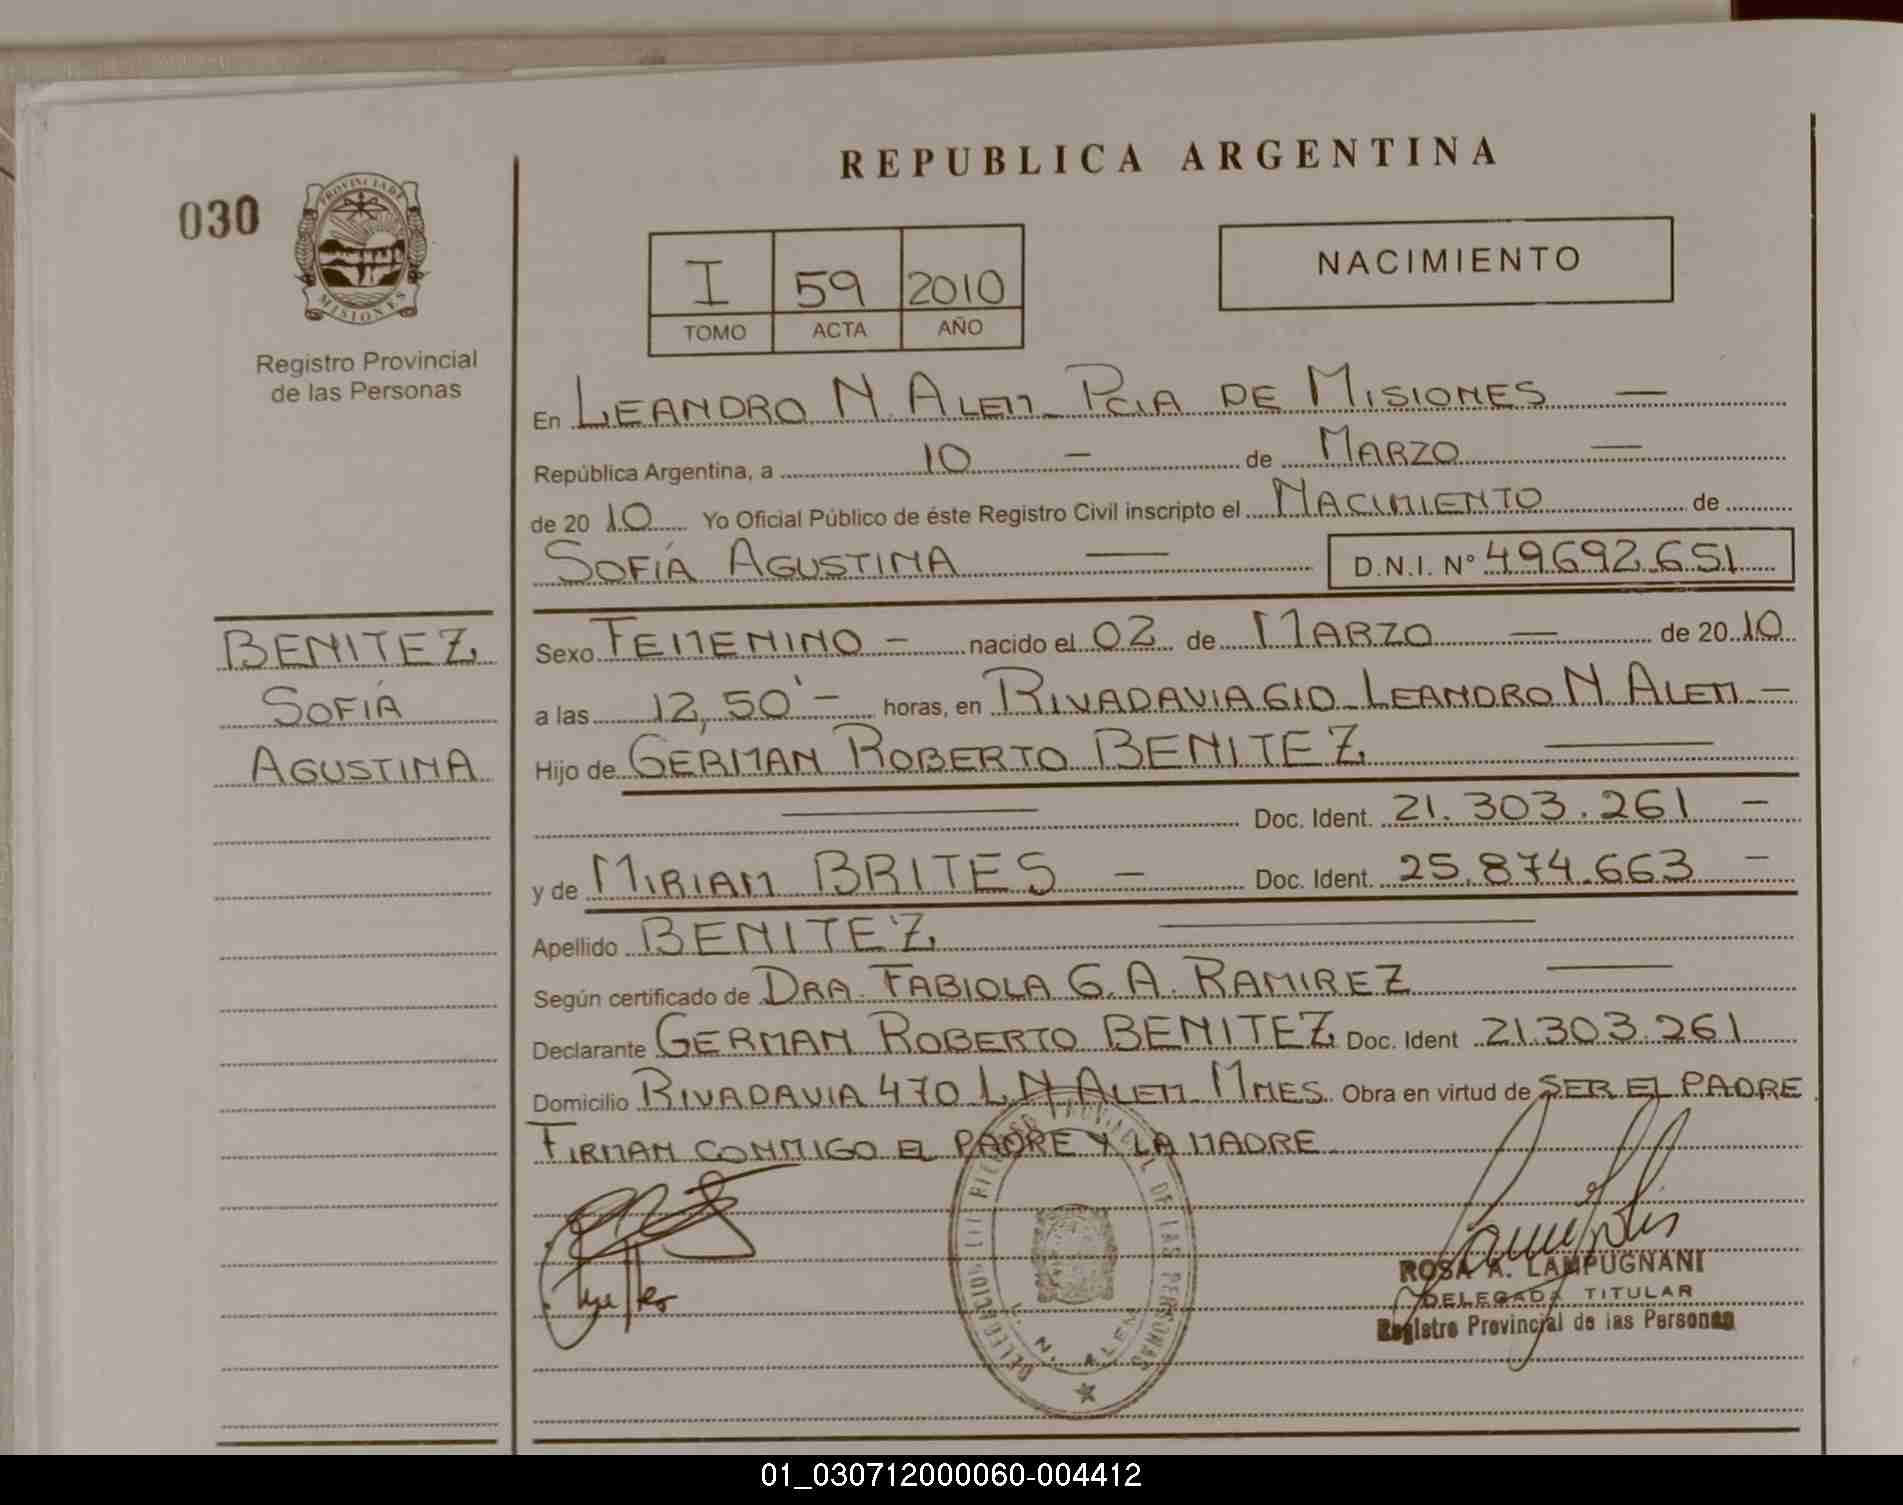 REPUBLICA ARGENTINA
030
PROVINCIA DE
MISIONES
Registro Provincial
de las Personas
I 59 2010
TOMO ACTA AÑO
NACIMIENTO
En LEANDRO N. ALEM - PCIA DE MISIONES —
República Argentina, a 10 - de MARZO —
de 20 10 Yo Oficial Público de éste Registro Civil inscripto el NACIMIENTO de
SOFÍA AGUSTINA — D.N.I. Nº 49.692.651
BENITEZ
SOFÍA
AGUSTINA
Sexo FEMENINO - nacido el 02 de MARZO — de 20 10
a las 12,50' - horas, en RIVADAVIA 610 - LEANDRO N. ALEM -
Hijo de GERMAN ROBERTO BENITEZ —
— Doc. Ident. 21.303.261 -
y de MIRIAM BRITES - Doc. Ident. 25.874.663 -
Apellido BENITEZ —
Según certificado de DRA. FABIOLA G. A. RAMIREZ —
Declarante GERMAN ROBERTO BENITEZ Doc. Ident 21.303.261
Domicilio RIVADAVIA 470 L.N. ALEM MNES. Obra en virtud de SER EL PADRE.
FIRMAN CONMIGO EL PADRE Y LA MADRE
DELEGACION DEL REGISTRO PROVINCIAL DE LAS PERSONAS
L. N. ALEM
ROSA A. LAMPUGNANI
DELEGADA TITULAR
Registro Provincial de las Personas
01_030712000060-004412